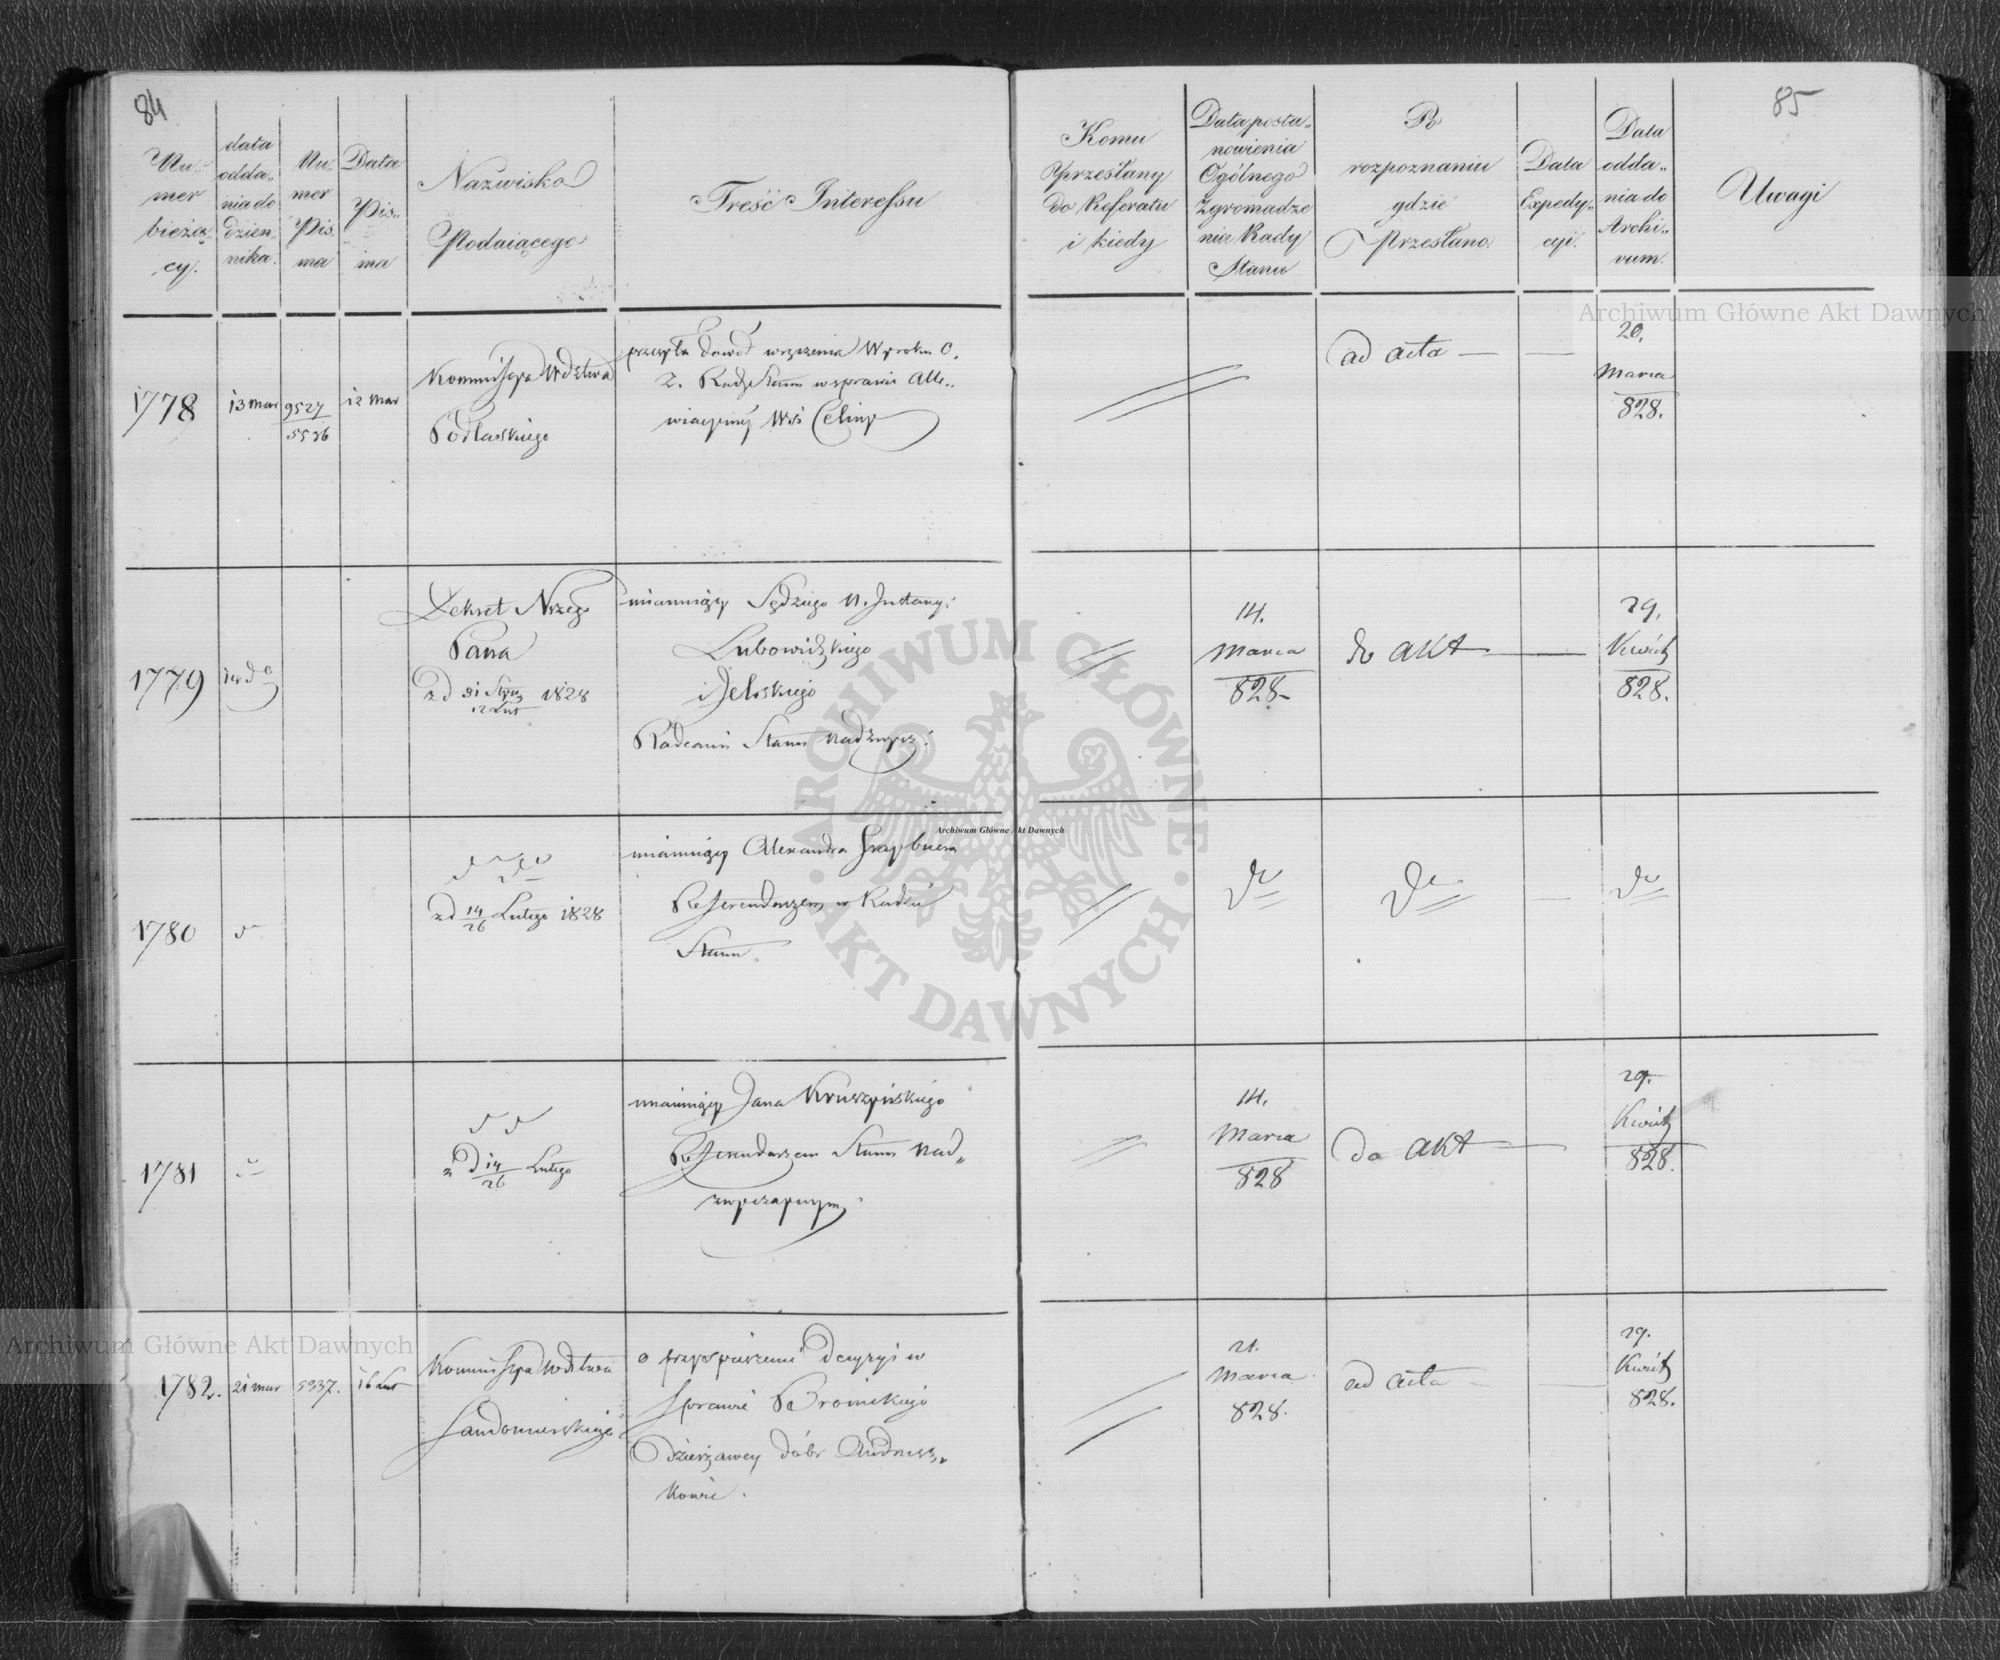 84
85
Nu-
mer
bieżą-
cy.
data
odda-
nia do
dzien-
nika.
Nu-
mer
Pis-
ma
Data
Pis-
ma
Nazwisko
Podaiącego
Treść Interessu
Komu
przesłany
do Referatu
i kiedy
Data posta-
nowienia
Ogólnego
Zgromadze
nia Rady
Stanu
Po
rozpoznaniu
gdzie
Przesłano.
Data
Expedy-
cyi.
Data
odda-
nia do
Archi-
vum.
Uwagi
1778
13 mar
9527
5536
12 Mar
Kommissya Wdztwa
Podlaskiego
przesyła dowód wręczenia Wyroku O.
Z. Rady Stanu w sprawie
Wsi Celiny
ad acta
20.
Marca
828.
1779
Dekret Nżego
Pana
z d 31 Stycz 1828
12 Lut
mianuiący Sędziego
Lubowidzkiego
i Jelskiego
Radcami Stanu Nadzwycz:
14.
Marca
828
do akt
29.
Kwiet
828.
1780
z d 14 Lutego 1828
26
mianuiący Alexandra
Referendarzem w Radzie
Stanu.
1781
z d 14 Lutego
26
mianuiący Jana Kruszyńskiego
Referendarzem Stanu Nad-
zwyczaynym
14.
Marca
828
do akt
29.
Kwiet
828.
1782.
21 mar
5337.
16 Lut
Kommissya Wdztwa
Sandomierskiego
o przyspieszenie decyzyi w
sprawie
Dzierżawcy dóbr
21.
Marca
828.
ad acta
29.
Kwiet
828.
Archiwum Główne Akt Dawnych
ARCHIWUM GŁÓWNE
AKT DAWNYCH
Archiwum Główne Akt Dawnych
Archiwum Główne Akt Dawnych